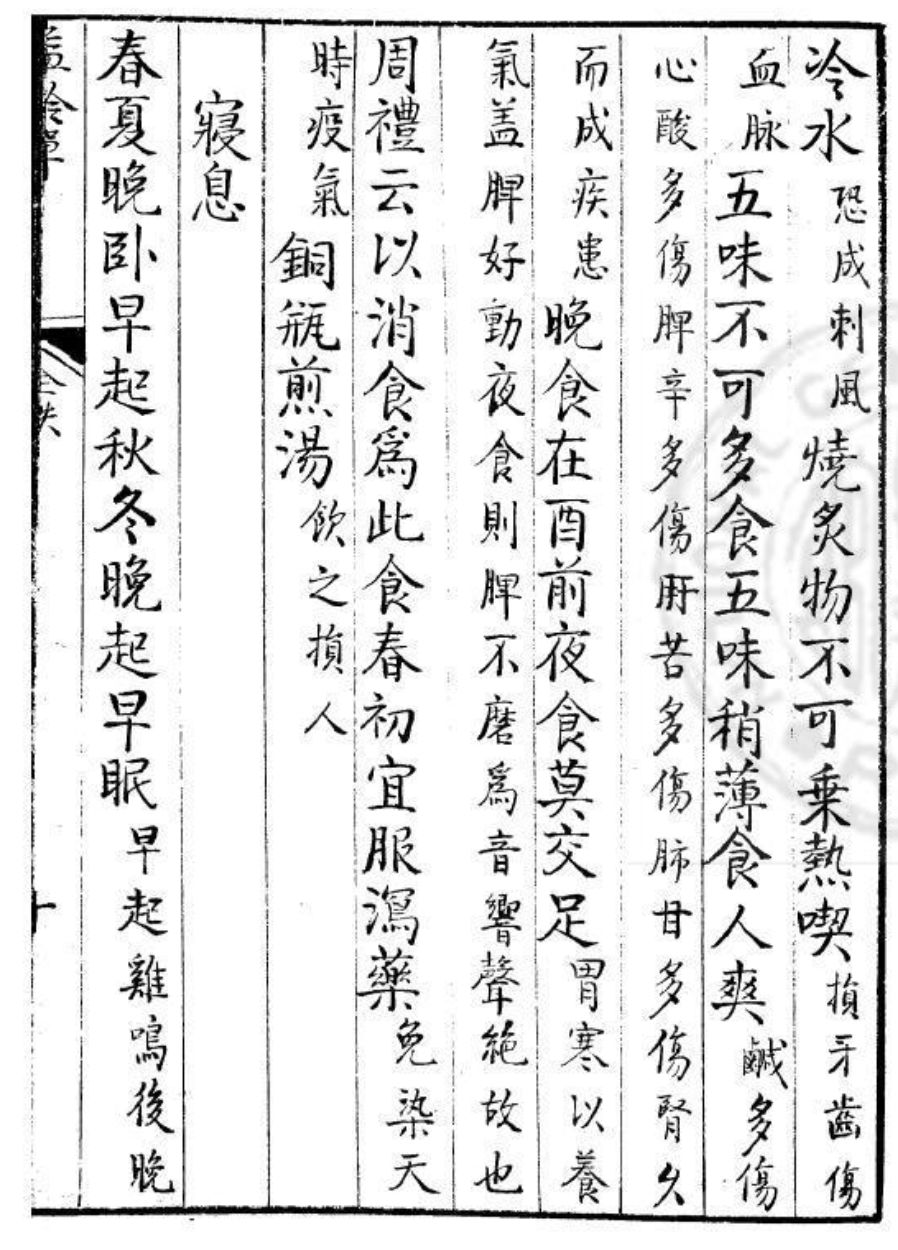 冷水恐成刺風燒炙物不可乗熱喫損牙齒傷
血脉五味不可多食五味稍薄食人爽鹹多傷
心酸多傷脾辛多傷肝苦多傷肺甘多傷腎久
而成疾患晚食在酉前夜食莫交足胃寒以養
氣盖脾好動夜食則脾不磨爲音響聲絶故也
周禮云以消食爲此食春初宜服瀉藥免染天
時疫氣銅瓶煎湯飲之損人
寢息
春夏晚卧早起秋冬晚起早眠早起雞鳴後晚